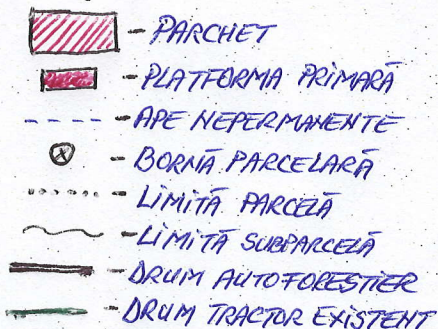 - PARCHET
- PLATFORMA PRIMARĂ
- APE NEPERMANENTE
- BORNĂ PARCELARĂ
- LIMITĂ PARCELĂ
- LIMITĂ SUBPARCELĂ
- DRUM AUTOFORESTIER
- DRUM TRACTOR EXISTENT